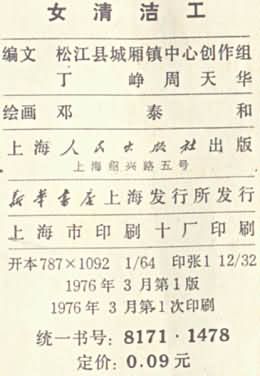 女清洁工
编文 松江县城厢镇中心创作组
丁峥 周天华
绘画 邓泰和
上海人民出版社出版
上海绍兴路五号
新华书店上海发行所发行
上海市印刷十厂印刷
开本787×1092 1/64 印张1 12/32
1976年3月第1版
1976年3月第1次印刷
统一书号:8171·1478
定价:0.09元